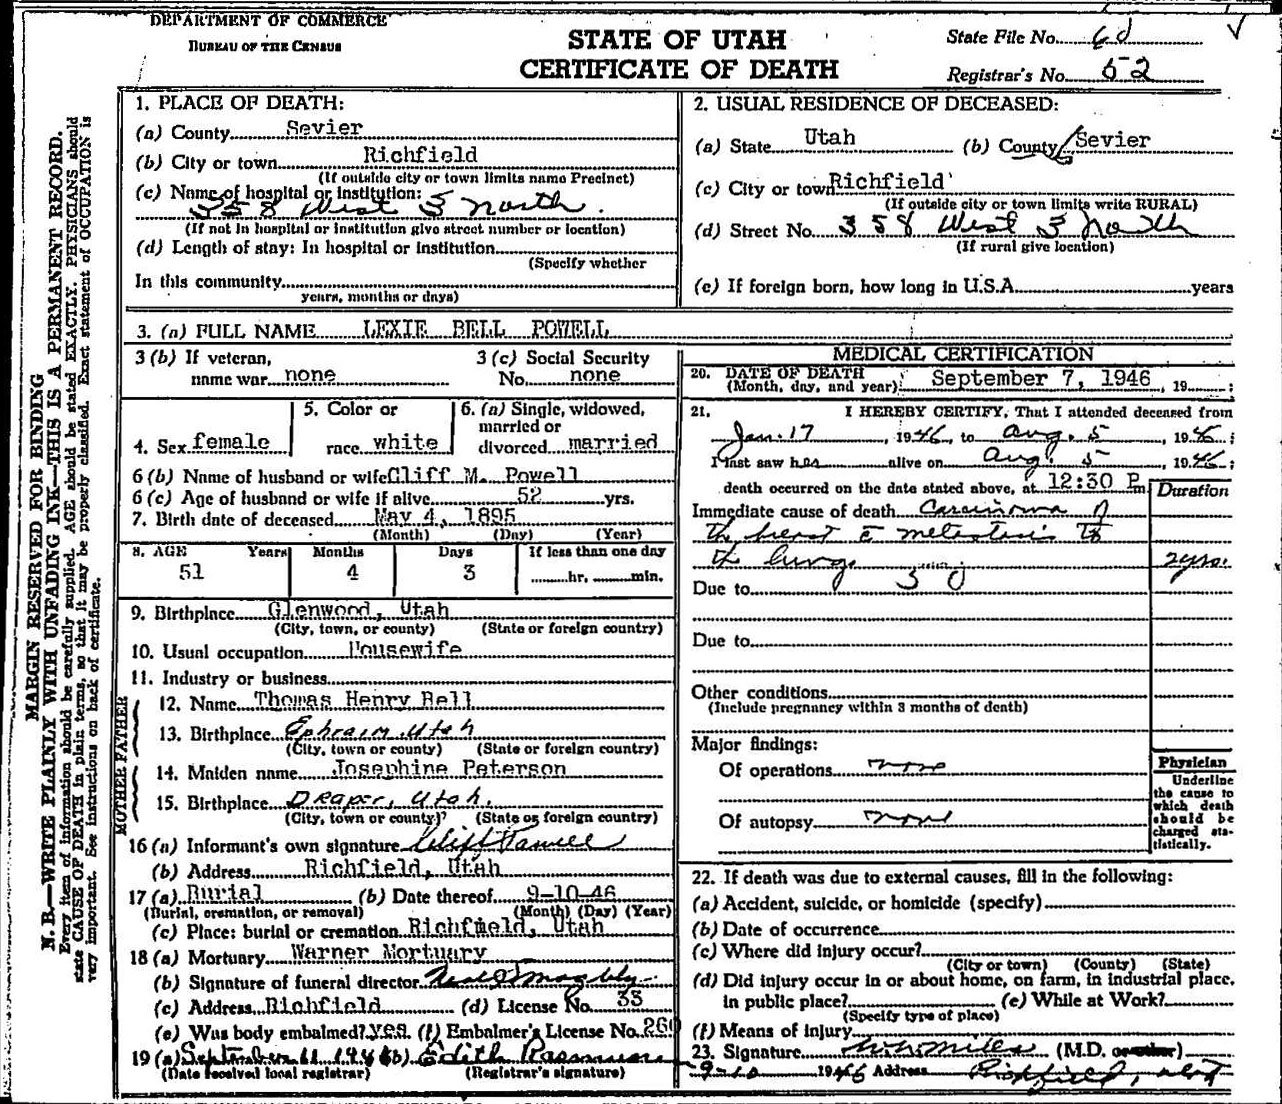 DEPARTMENT OF COMMERCE
BUREAU OF THE CENSUS
STATE OF UTAH
CERTIFICATE OF DEATH
State File No. 60
Registrar's No. 52
MARGIN RESERVED FOR BINDING
N. B.—WRITE PLAINLY WITH UNFADING INK—THIS IS A PERMANENT RECORD.
Every item of information should be carefully supplied. AGE should be stated EXACTLY. PHYSICIANS should
state CAUSE OF DEATH in plain terms, so that it may be properly classified. Exact statement of OCCUPATION is
very important. See instructions on back of certificate.
1. PLACE OF DEATH:
(a) County Sevier
(b) City or town Richfield
(If outside city or town limits name Precinct)
(c) Name of hospital or institution:
358 West 3 North.
(If not in hospital or institution give street number or location)
(d) Length of stay: In hospital or institution
(Specify whether
In this community
years, months or days)
2. USUAL RESIDENCE OF DECEASED:
(a) State Utah (b) County Sevier
(c) City or town Richfield
(If outside city or town limits write RURAL)
(d) Street No. 358 West 3 North
(If rural give location)
(e) If foreign born, how long in U.S.A. years
3. (a) FULL NAME LEXIE BELL POWELL
3 (b) If veteran, 3 (c) Social Security
name war none No. none
4. Sex female
5. Color or
race white
6. (a) Single, widowed,
married or
divorced married
6 (b) Name of husband or wife Cliff M. Powell
6 (c) Age of husband or wife if alive 52 yrs.
7. Birth date of deceased May 4, 1895
(Month) (Day) (Year)
8. AGE Years Months Days If less than one day
51 4 3 hr. min.
9. Birthplace Glenwood, Utah
(City, town, or county) (State or foreign country)
10. Usual occupation Housewife
11. Industry or business
FATHER
12. Name Thomas Henry Bell
13. Birthplace Ephraim Utah
(City, town or county) (State or foreign country)
MOTHER
14. Maiden name Josephine Peterson
15. Birthplace Draper, Utah.
(City, town or county) (State or foreign country)
16 (a) Informant's own signature Cliff Powell
(b) Address Richfield, Utah
17 (a) Burial (b) Date thereof 9-10-46
(Burial, cremation, or removal) (Month) (Day) (Year)
(c) Place: burial or cremation Richfield, Utah
18 (a) Mortuary Warner Mortuary
(b) Signature of funeral director
(c) Address Richfield (d) License No. 33
(e) Was body embalmed? yes (f) Embalmer's License No. 260
19 (a) September 11 1946 (b) Edith Rasmussen
(Date received local registrar) (Registrar's signature)
MEDICAL CERTIFICATION
20. DATE OF DEATH
(Month, day, and year): September 7, 1946, 19 ;
21. I HEREBY CERTIFY, That I attended deceased from
Jan. 17, 1946, to Aug. 5, 1946;
I last saw her alive on Aug. 5, 1946;
death occurred on the date stated above, at 12:30 P m
Duration
Immediate cause of death Carcinoma of
the breast c metastasis to
the lungs 2 yrs.
Due to 50
Due to
Other conditions
(Include pregnancy within 3 months of death)
Major findings:
Of operations none
Of autopsy none
Physician
Underline
the cause to
which death
should be
charged sta-
tistically.
22. If death was due to external causes, fill in the following:
(a) Accident, suicide, or homicide (specify)
(b) Date of occurrence
(c) Where did injury occur?
(City or town) (County) (State)
(d) Did injury occur in or about home, on farm, in industrial place,
in public place? (e) While at Work?
(Specify type of place)
(f) Means of injury
23. Signature W. W. Miles (M.D. or other)
9-10 1946 Address Richfield, Utah